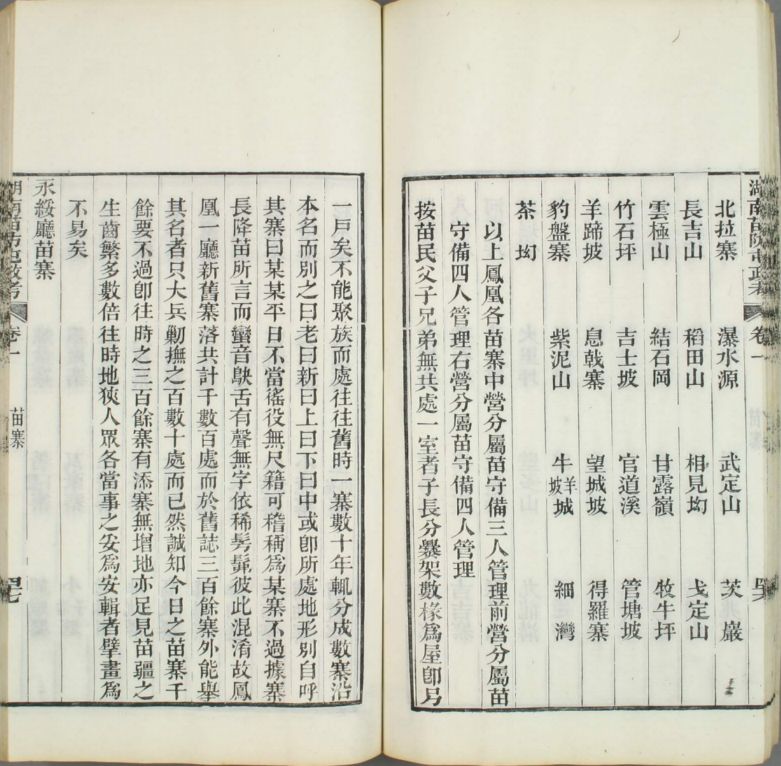 湖南苗防屯政考 卷一
北拉寨 瀑水源 武定山 茨巖
長吉山 稻田山 相見㘭 戈定山
雲極山 結石岡 甘露嶺 牧牛坪
竹石坪 吉士坡 官道溪 管塘坡
羊蹄坡 息戟寨 望城坡 得羅寨
豹盤寨 紫泥山 牛羊坡城 細灣
茶㘭
以上鳳凰各苗寨中營分屬苗守備三人管理前營分屬苗
守備四人管理右營分屬苗守備四人管理
按苗民父子兄弟無共處一室者子長分爨架數椽爲屋卽另
一戶矣不能聚族而處往往舊時一寨數十年輒分成數寨沿
本名而別之曰老曰新曰上曰下曰中或卽所處地形別自呼
其寨曰某某平日不當徭役無尺籍可稽稱爲某寨不過據寨
長降苗所言而蠻音鴃舌有聲無字依稀髣髴彼此混淆故鳳
凰一廳新舊寨落共計千數百處而於舊誌三百餘寨外能舉
其名者只大兵勦撫之百數十處而已然誠知今日之苗寨千
餘要不過卽往時之三百餘寨有添寨無增地亦足見苗疆之
生齒繁多數倍往時地狹人眾各當事之安爲安輯者擘畫爲
不易矣
永綏廳苗寨
湖南苗防屯政考 卷一 苗寨